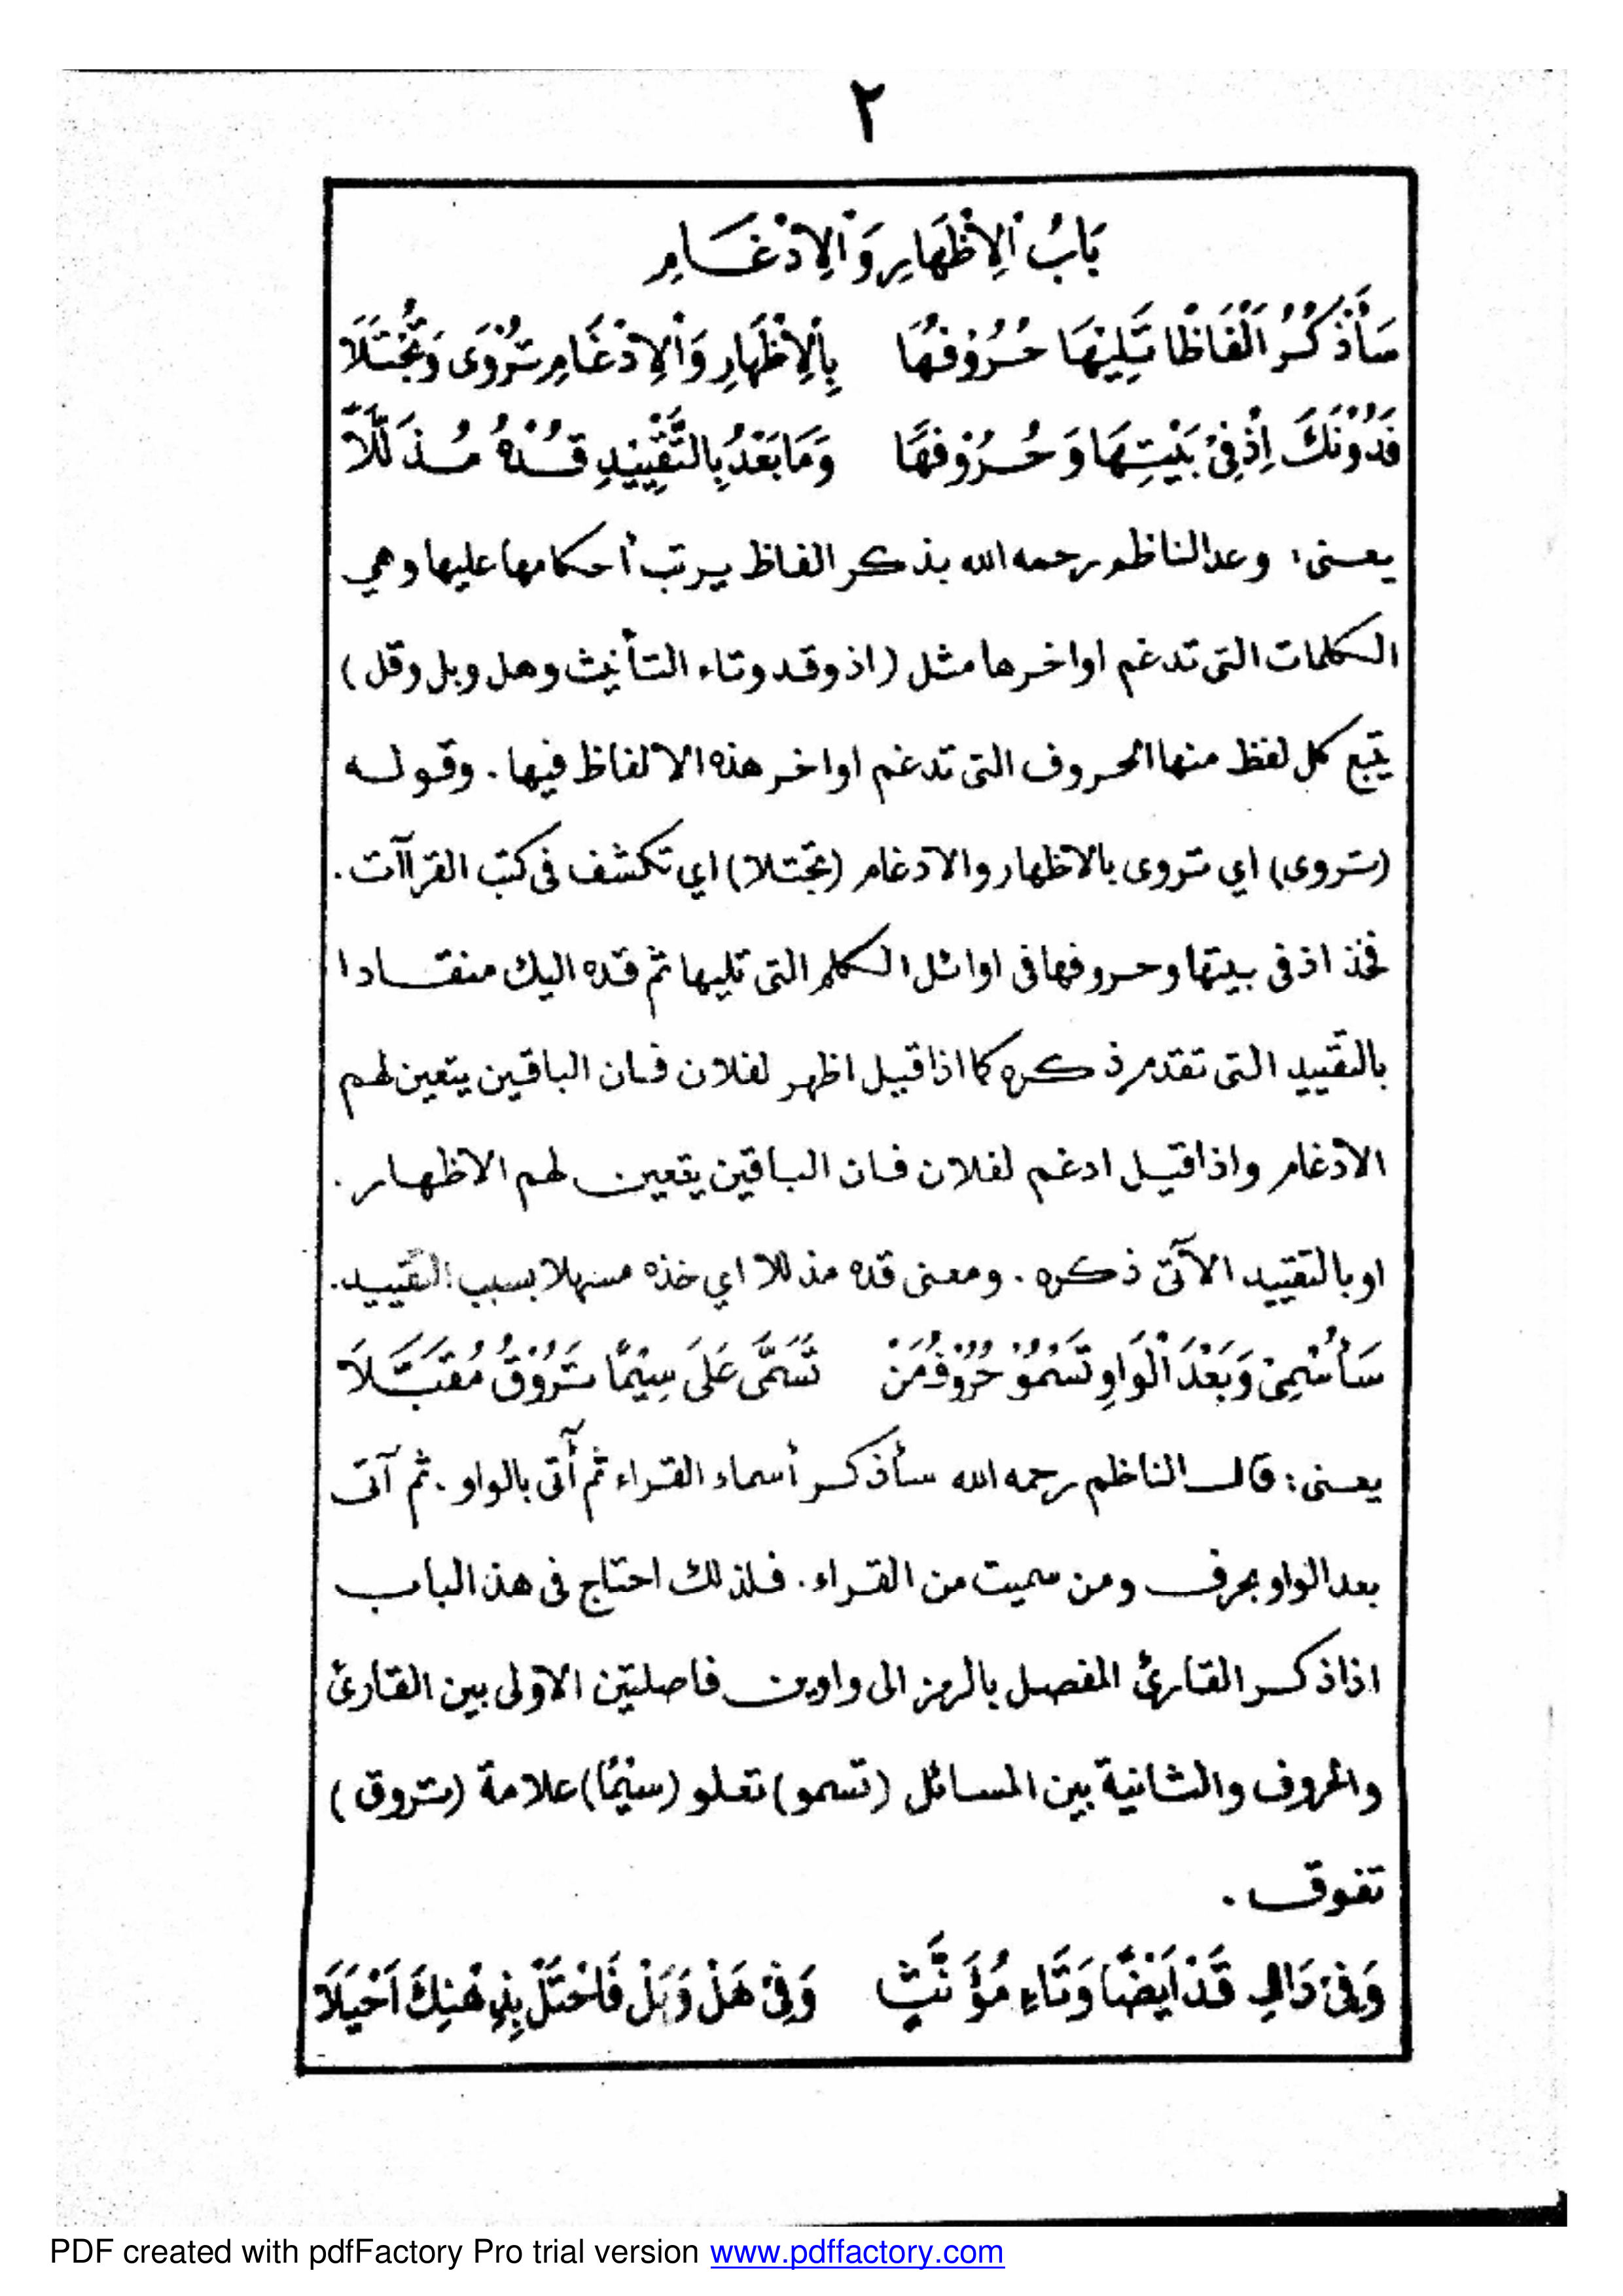 ٢
بَابُ الْإِظْهَارِ وَالْإِدْغَامِ
سَأَذْكُرُ أَلْفَاظًا تَلِيْهَا حُرُوْفُهَا بِالْإِظْهَارِ وَالْإِدْغَامِ تُرْوَى وَتُجْتَلَا
فَدُوْنَكَ إِذْ فِىْ بَيْتِهَا وَحُرُوْفِهَا وَمَا بَعْدُ بِالتَّقْيِيْدِ قُدْهُ مُذَلَّلَا
يعنى: وعد الناظم رحمه الله بذكر الفاظ يرتب أحكامها عليها وهي
الكلمات التى تدغم اواخرها مثل (اذ وقد وتاء التأنيث وهل وبل وقل)
يتبع كل لفظ منها الحروف التى تدغم اواخر هذه الالفاظ فيها. وقوله
(تروى) اي تروى بالاظهار والادغام (تجتلا) اي تكشف فى كتب القراآت.
فخذ اذ فى بيتها وحروفها فى اوائل الكلم التى تليها ثم قده اليك منقادا
بالتقييد التى تقدم ذكره كما اذا قيل اظهر لفلان فان الباقين يتعين لهم
الادغام واذا قيل ادغم لفلان فان الباقين يتعين لهم الاظهار.
او بالتقييد الآتى ذكره. ومعنى قده مذللا اي خذه مسهلا بسبب التقييد.
سَأُسْمِىْ وَبَعْدَ الْوَاوِ تَسْمُوْ حُرُوْفُ مَنْ تَسَمَّى عَلَى سِيْمًا تَرُوْقُ مُقَبَّلَا
يعنى: قال الناظم رحمه الله سأذكر أسماء القراء ثم أتى بالواو. ثم آتى
بعد الواو بحرف ومن سميت من القراء. فلذلك احتاج فى هذ الباب
اذا ذكر القارئ المفصل بالرمز الى واوين فاصلتين الاولى بين القارئ
والحروف والثانية بين المسائل (تسمو) تعلو (سيمًا) علامة (تروق)
تفوق.
وَفِىْ دَالِ قَدْ اَيْضًا وَتَاءِ مُؤَنَّثٍ وَفِىْ هَلْ وَبَلْ فَاحْتَلْ بِذِهْنِكَ اَحْيَلَا
PDF created with pdfFactory Pro trial version www.pdffactory.com